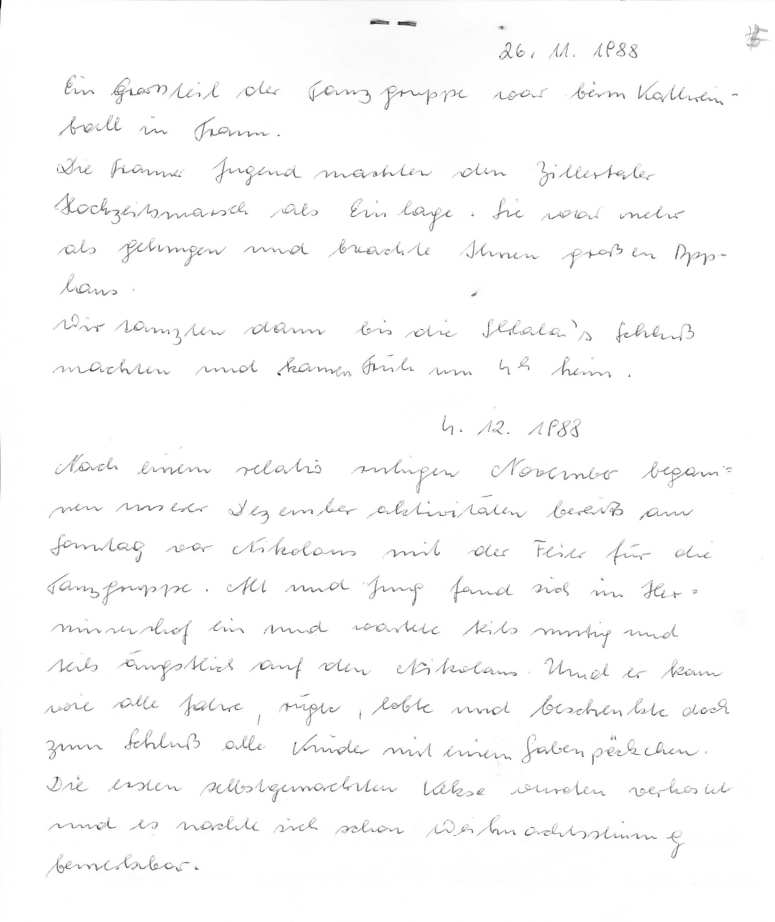 26. 11. 1988
Ein Grossteil der Tanzgruppe war beim Kathrein-
ball in Traun.
Die Trauner Jugend machten den Zillertaler
Hochzeitsmarsch als Einlage. Sie war mehr
als gelungen und brachte Ihnen großen App-
laus.
Wir tanzten dann bis die Schluß
machten und kamen Früh um 4h heim.
4. 12. 1988
Nach einem relativ ruhigen November begann=
nen unserer Dezember aktivitäten bereits am
Sonntag vor Nikolaus mit der Feier für die
Tanzgruppe. Alt und Jung fand sich im Her=
minenhof ein und wartete teils mutig und
teils ängstlich auf den Nikolaus. Und er kam
wie alle Jahre, rügte, lobte und beschenkte doch
zum Schluß alle Kinder mit einem Gabenpäckchen.
Die ersten selbstgemachten Kekse wurden verkostet
und es machte sich schon Weihnachtsstimmung
bemerkbar.